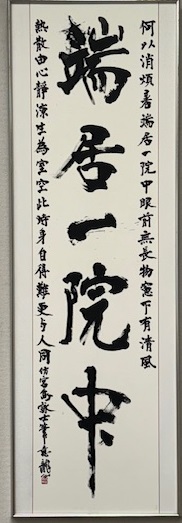 何以消煩暑端居一院中眼前無長物窓下有清風
端居一院中
熱散由心靜涼生為室空此時身自得難更与人同 仿宮島詠士筆意 龍